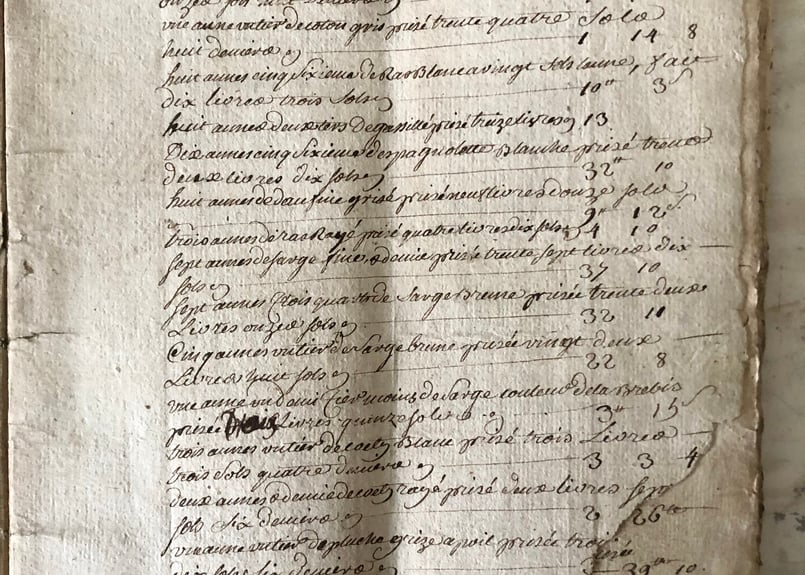 une aune un tier de coton gris prisé trente quatre sols
huit deniers 1 14 8
huit aunes cinq Sixieme de Ras Blanc a vingt sols laune, fait
dix livres trois sols 10tt 3s
huit aunes deux tiers de prisé treize livres 13
Dix aunes cinq Sixieme despagnolette Blanche prisé trente
deux livres dix sols 32tt 10
huit aunes de dauphine grise prisé neuf livres douze sols
9tt 12s
trois aunes de ras Rayé prisé quatre livres dix sols 4 10
sept aunes de sarge fine et demie prisé trente sept livres dix
sols 37 10
sept aunes trois quarts de Sarge Brune prisée trente deux
Livres onze sols 32 11
Cinq aunes un tier de Sarge brune prisée vingt deux
Livres huit sols 22 8
une aune un demi tier moins de Sarge couleur de la Brebis
prisée trois Livres quinze sols 3tt 15s
trois aunes un tier de Blanc prisé trois Livres
trois sols quatre deniers 3 3 4
deux aunes et demie de rayé prisé deux livres sept
sols six deniers 2
une aune un tier de pluche grize a poil prisée trois
dix sols six deniers